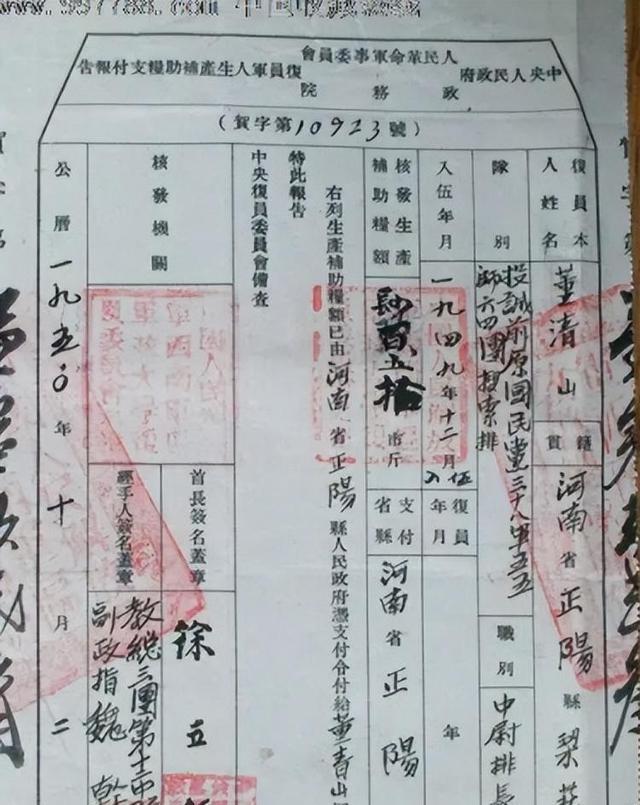 www.997788.com 中国收藏热线
中央人民政府
人民革命軍事委員會
政務院
復員軍人生產補助糧支付報告
(贺字第10923號)
復員本人姓名 董清山 籍貫 河南省正陽縣梨
隊別 投誠前原國民黨三十八軍五五師六四團搜索排 職別 中尉排長
入伍年月 一九四九年十二月入伍 復員年月 年
核發生產補助糧額 肆百五拾市斤 支付省縣 河南省正陽
右列生產補助糧額已由河南省正陽縣人民政府憑支付令付給董青山
特此報告
中央復員委員會備查
核發機關
首長簽名蓋章 徐立
經手人簽名蓋章 教總三團第十二中隊副政指魏
公曆一九五〇年十月二